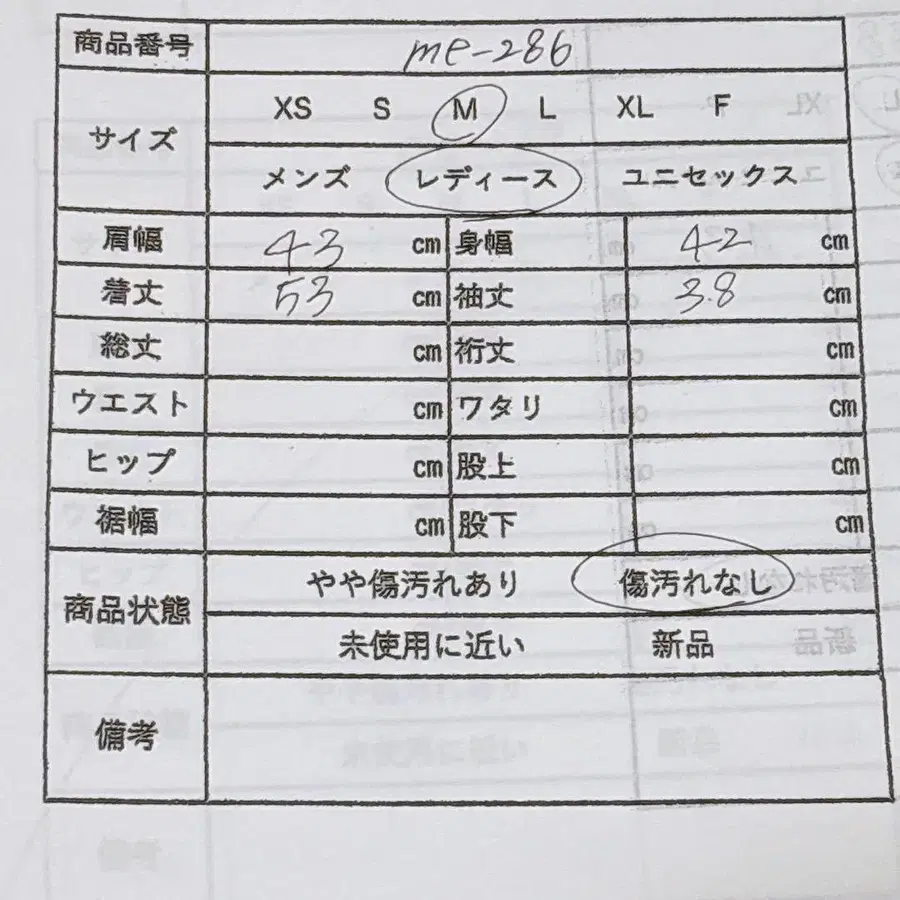 商品番号 me-286
サイズ XS S M L XL F
メンズ レディース ユニセックス
肩幅 43 cm 身幅 42 cm
着丈 53 cm 袖丈 38 cm
総丈 cm 裄丈 cm
ウエスト cm ワタリ cm
ヒップ cm 股上 cm
裾幅 cm 股下 cm
商品状態 やや傷汚れあり 傷汚れなし
未使用に近い 新品
備考